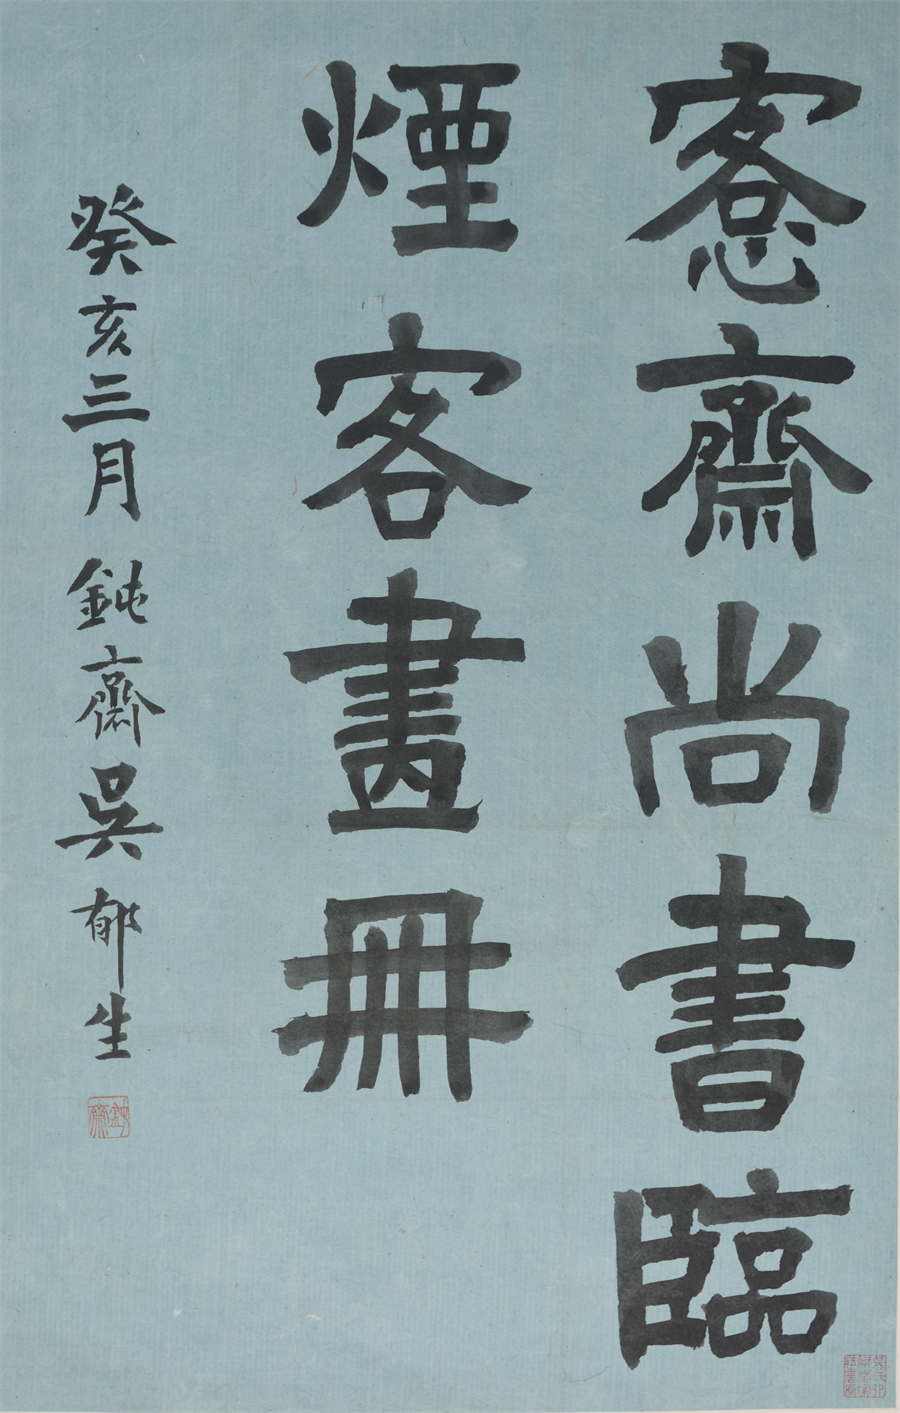 愙齋尚書臨
煙客畫冊
癸亥三月 鈍齋吳郁生
鈍齋